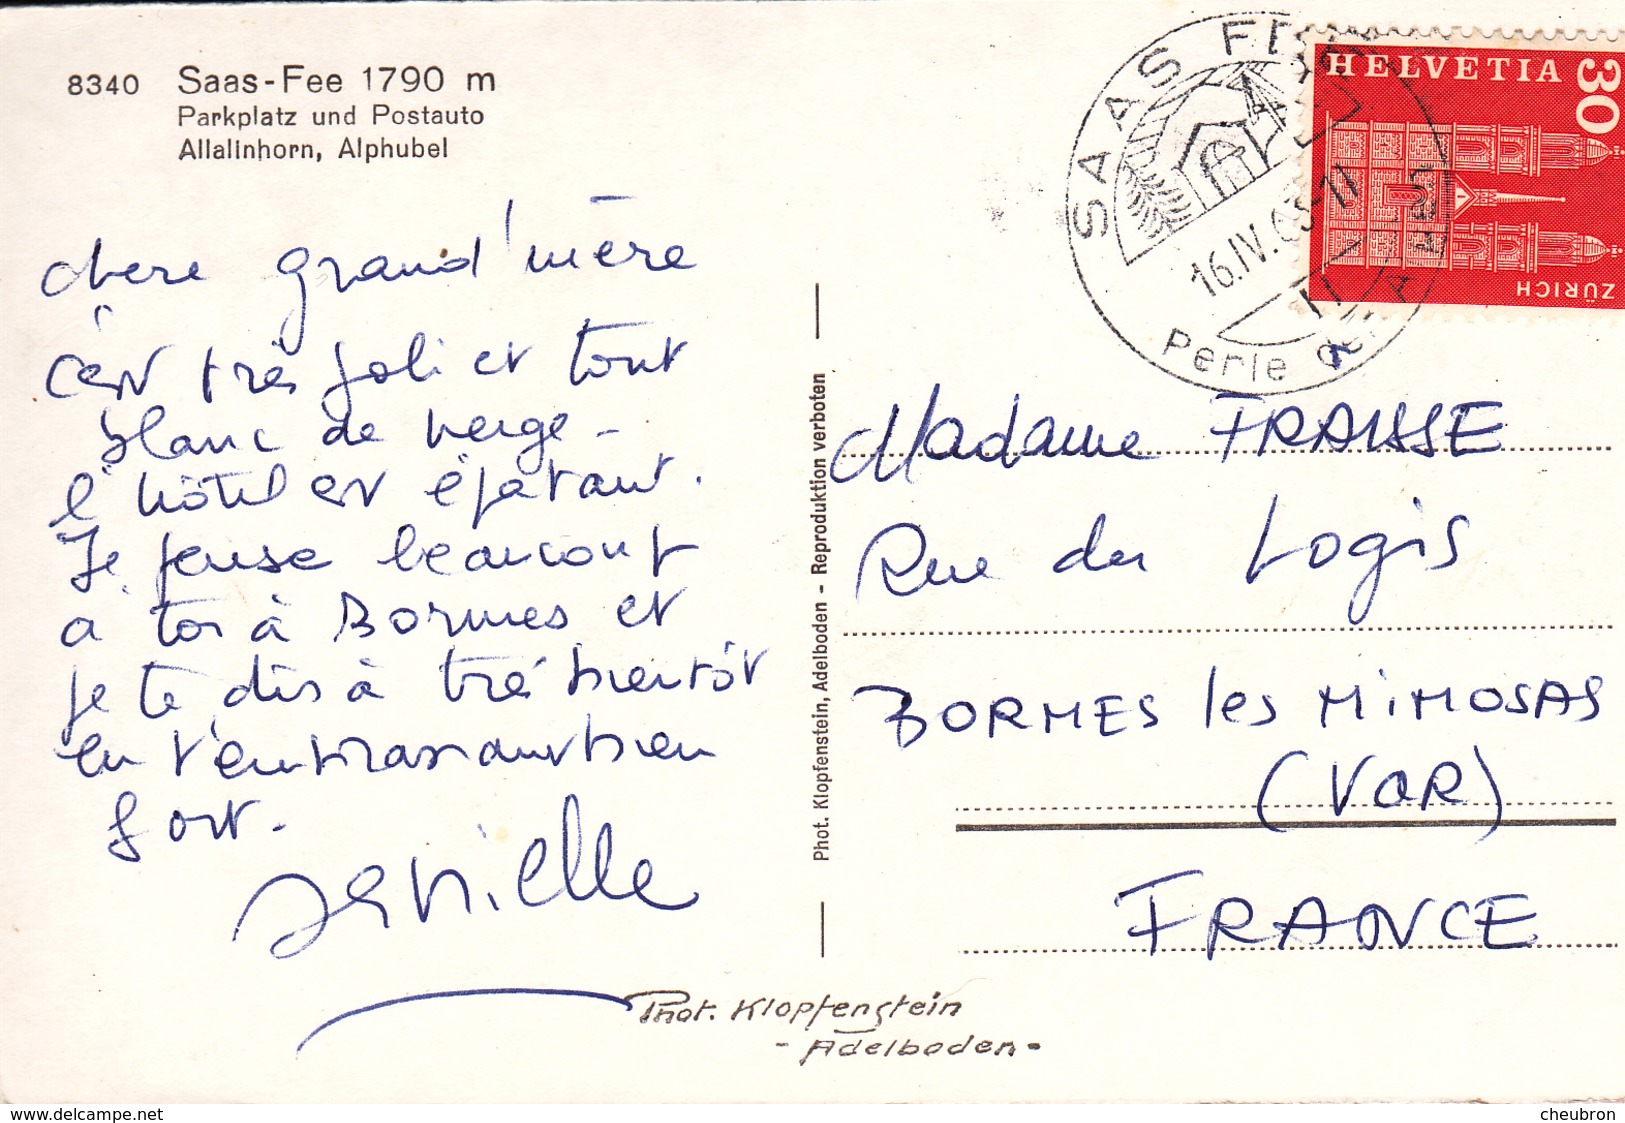 8340 Saas-Fee 1790 m
Parkplatz und Postauto
Allalinhorn, Alphubel
chere grand'mère
c'est très joli et tout
blanc de neige -
l'hôtel est épatant.
Je pense beaucoup
à toi à BORMES et
je te dis à très bientôt
en t'embrassant bien
fort.
Phot. Klopfenstein, Adelboden - Reproduktion verboten
SAAS FEE
16.IV.63-11
Perle der Alpen
HELVETIA 30
ZÜRICH
Madame FRAISSE
Rue du Logis
BORMES les MIMOSAS
(VAR)
FRANCE
Phot. Klopfenstein
- Adelboden -
www.delcampe.net
cheubron